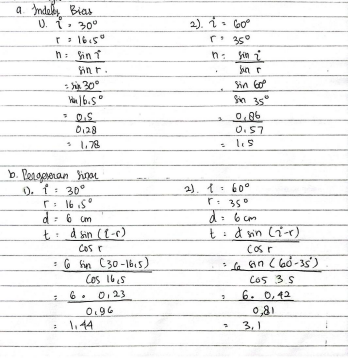 a. Indeks Bias
1). i = 30°
r = 16.5°
n = sin i
sin r.
= sin 30°
sin 16.5°
= 0,5
0,28
= 1,78
2). i = 60°
r = 35°
n = sin i
sin r
. sin 60°
sin 35°
= 0,86
0.57
= 1,5
b. Pergeseran Sinar
1). i = 30°
r = 16,5°
d = 6 cm
t = d sin (i-r)
cos r
= 6 sin (30-16,5)
cos 16,5
= 6 . 0,23
0,96
= 1,44
2). i = 60°
r = 35°
d = 6 cm
t = d sin (i-r)
cos r
= 6 sin (60-35°)
cos 35
= 6. 0,42
0,81
= 3,1